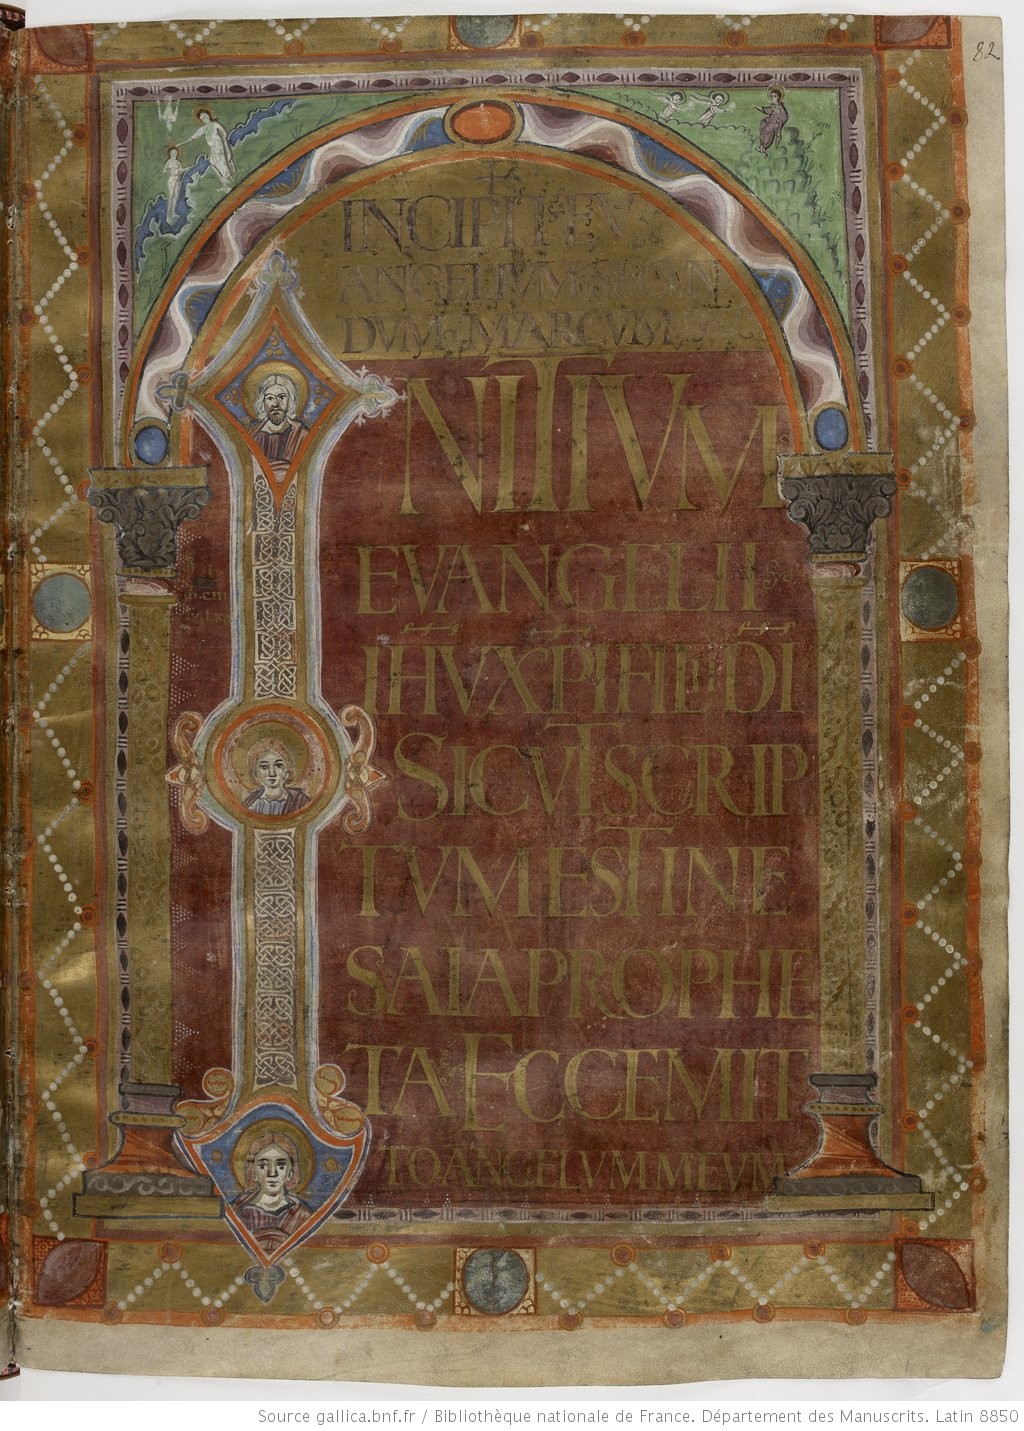 82
INCIPIT EV
ANGELIUM SECUN
DUM MARCUM
INITIUM
EVANGELII
IHU XPI FILII DI
SICUT SCRIP
TUM EST IN E
SAIA PROPHE
TA ECCE MIT
TO ANGELUM MEUM
Source gallica.bnf.fr / Bibliothèque nationale de France. Département des Manuscrits. Latin 8850